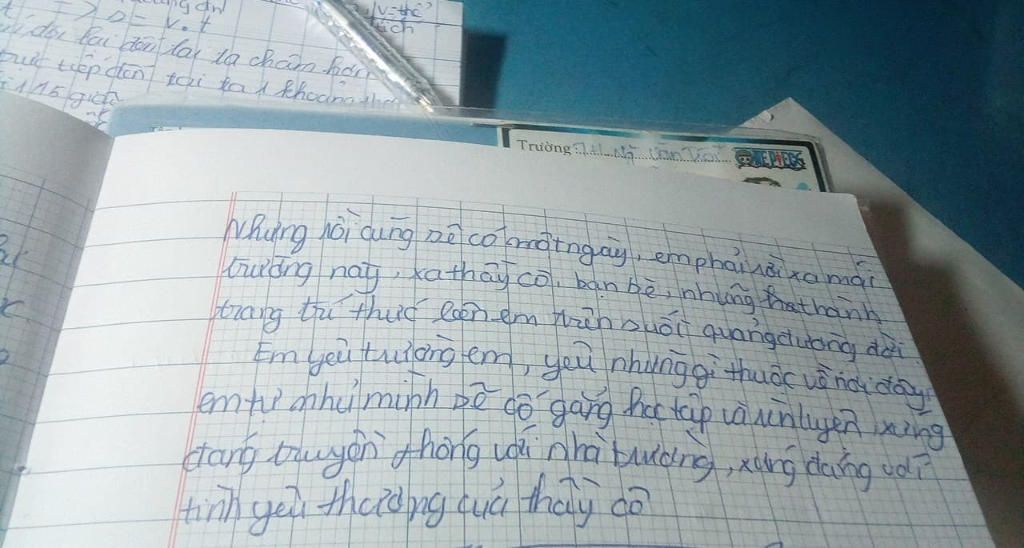 => s = v.t
trực tiếp đến tai ta 1 khoảng
Trường
Nhưng rồi cũng sẽ có một ngày, em phải rời xa mái
trường này, xa thầy cô, bạn bè, nhưng hành
trang trí thức bên em trên suốt quảng đường đời
Em yêu trường em, yêu những gì thuộc về nơi đây,
em tự nhủ mình sẽ cố gắng học tập và rèn luyện, xứng
đáng truyền thống với nhà trường, xứng đáng với
tình yêu thương của thầy cô